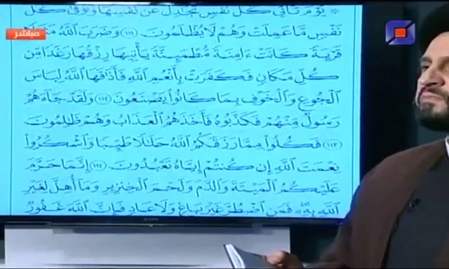 مباشر
يَوْمَ تَأْتِي كُلُّ نَفْسٍ تُجَادِلُ عَن نَّفْسِهَا وَتُوَفَّىٰ كُلُّ
نَفْسٍ مَّا عَمِلَتْ وَهُمْ لَا يُظْلَمُونَ ﴿١١١﴾ وَضَرَبَ اللَّهُ مَثَلًا
قَرْيَةً كَانَتْ ءَامِنَةً مُّطْمَئِنَّةً يَأْتِيهَا رِزْقُهَا رَغَدًا مِّن
كُلِّ مَكَانٍ فَكَفَرَتْ بِأَنْعُمِ اللَّهِ فَأَذَاقَهَا اللَّهُ لِبَاسَ
الْجُوعِ وَالْخَوْفِ بِمَا كَانُوا يَصْنَعُونَ ﴿١١٢﴾ وَلَقَدْ جَاءَهُمْ
رَسُولٌ مِّنْهُمْ فَكَذَّبُوهُ فَأَخَذَهُمُ الْعَذَابُ وَهُمْ ظَالِمُونَ
﴿١١٣﴾ فَكُلُوا مِمَّا رَزَقَكُمُ اللَّهُ حَلَالًا طَيِّبًا وَاشْكُرُوا
نِعْمَتَ اللَّهِ إِن كُنتُمْ إِيَّاهُ تَعْبُدُونَ ﴿١١٤﴾ إِنَّمَا حَرَّمَ
عَلَيْكُمُ الْمَيْتَةَ وَالدَّمَ وَلَحْمَ الْخِنزِيرِ وَمَا أُهِلَّ لِغَيْرِ
اللَّهِ بِهِ فَمَنِ اضْطُرَّ غَيْرَ بَاغٍ وَلَا عَادٍ فَإِنَّ اللَّهَ غَفُورٌ